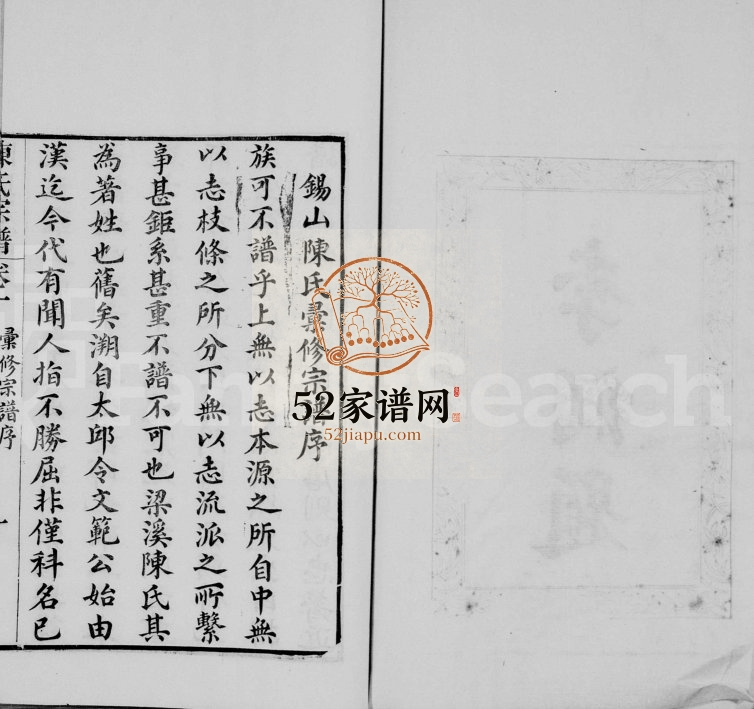 錫山陳氏彙修宗譜序
族可不譜乎上無以志本源之所自中無
以志枝條之所分下無以志流派之所繫
事甚鉅系甚重不譜不可也梁溪陳氏其
為著姓也舊矣溯自太邱令文範公始由
漢迄今代有聞人指不勝屈非僅科名已
陳氏宗譜 卷一 彙修宗譜序 一
52家谱网
52jiapu.com
FamilySearch